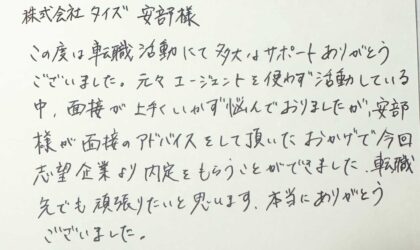 株式会社タイズ 安部様
この度は転職活動にて多大なサポートありがとう
ございました。元々エージェントを使わず活動している
中、面接が上手くいかず悩んでおりましたが、安部
様が面接のアドバイスをして頂いたおかげで今回
志望企業より内定をもらうことができました。転職
先でも頑張りたいと思います。本当にありがとう
ございました。